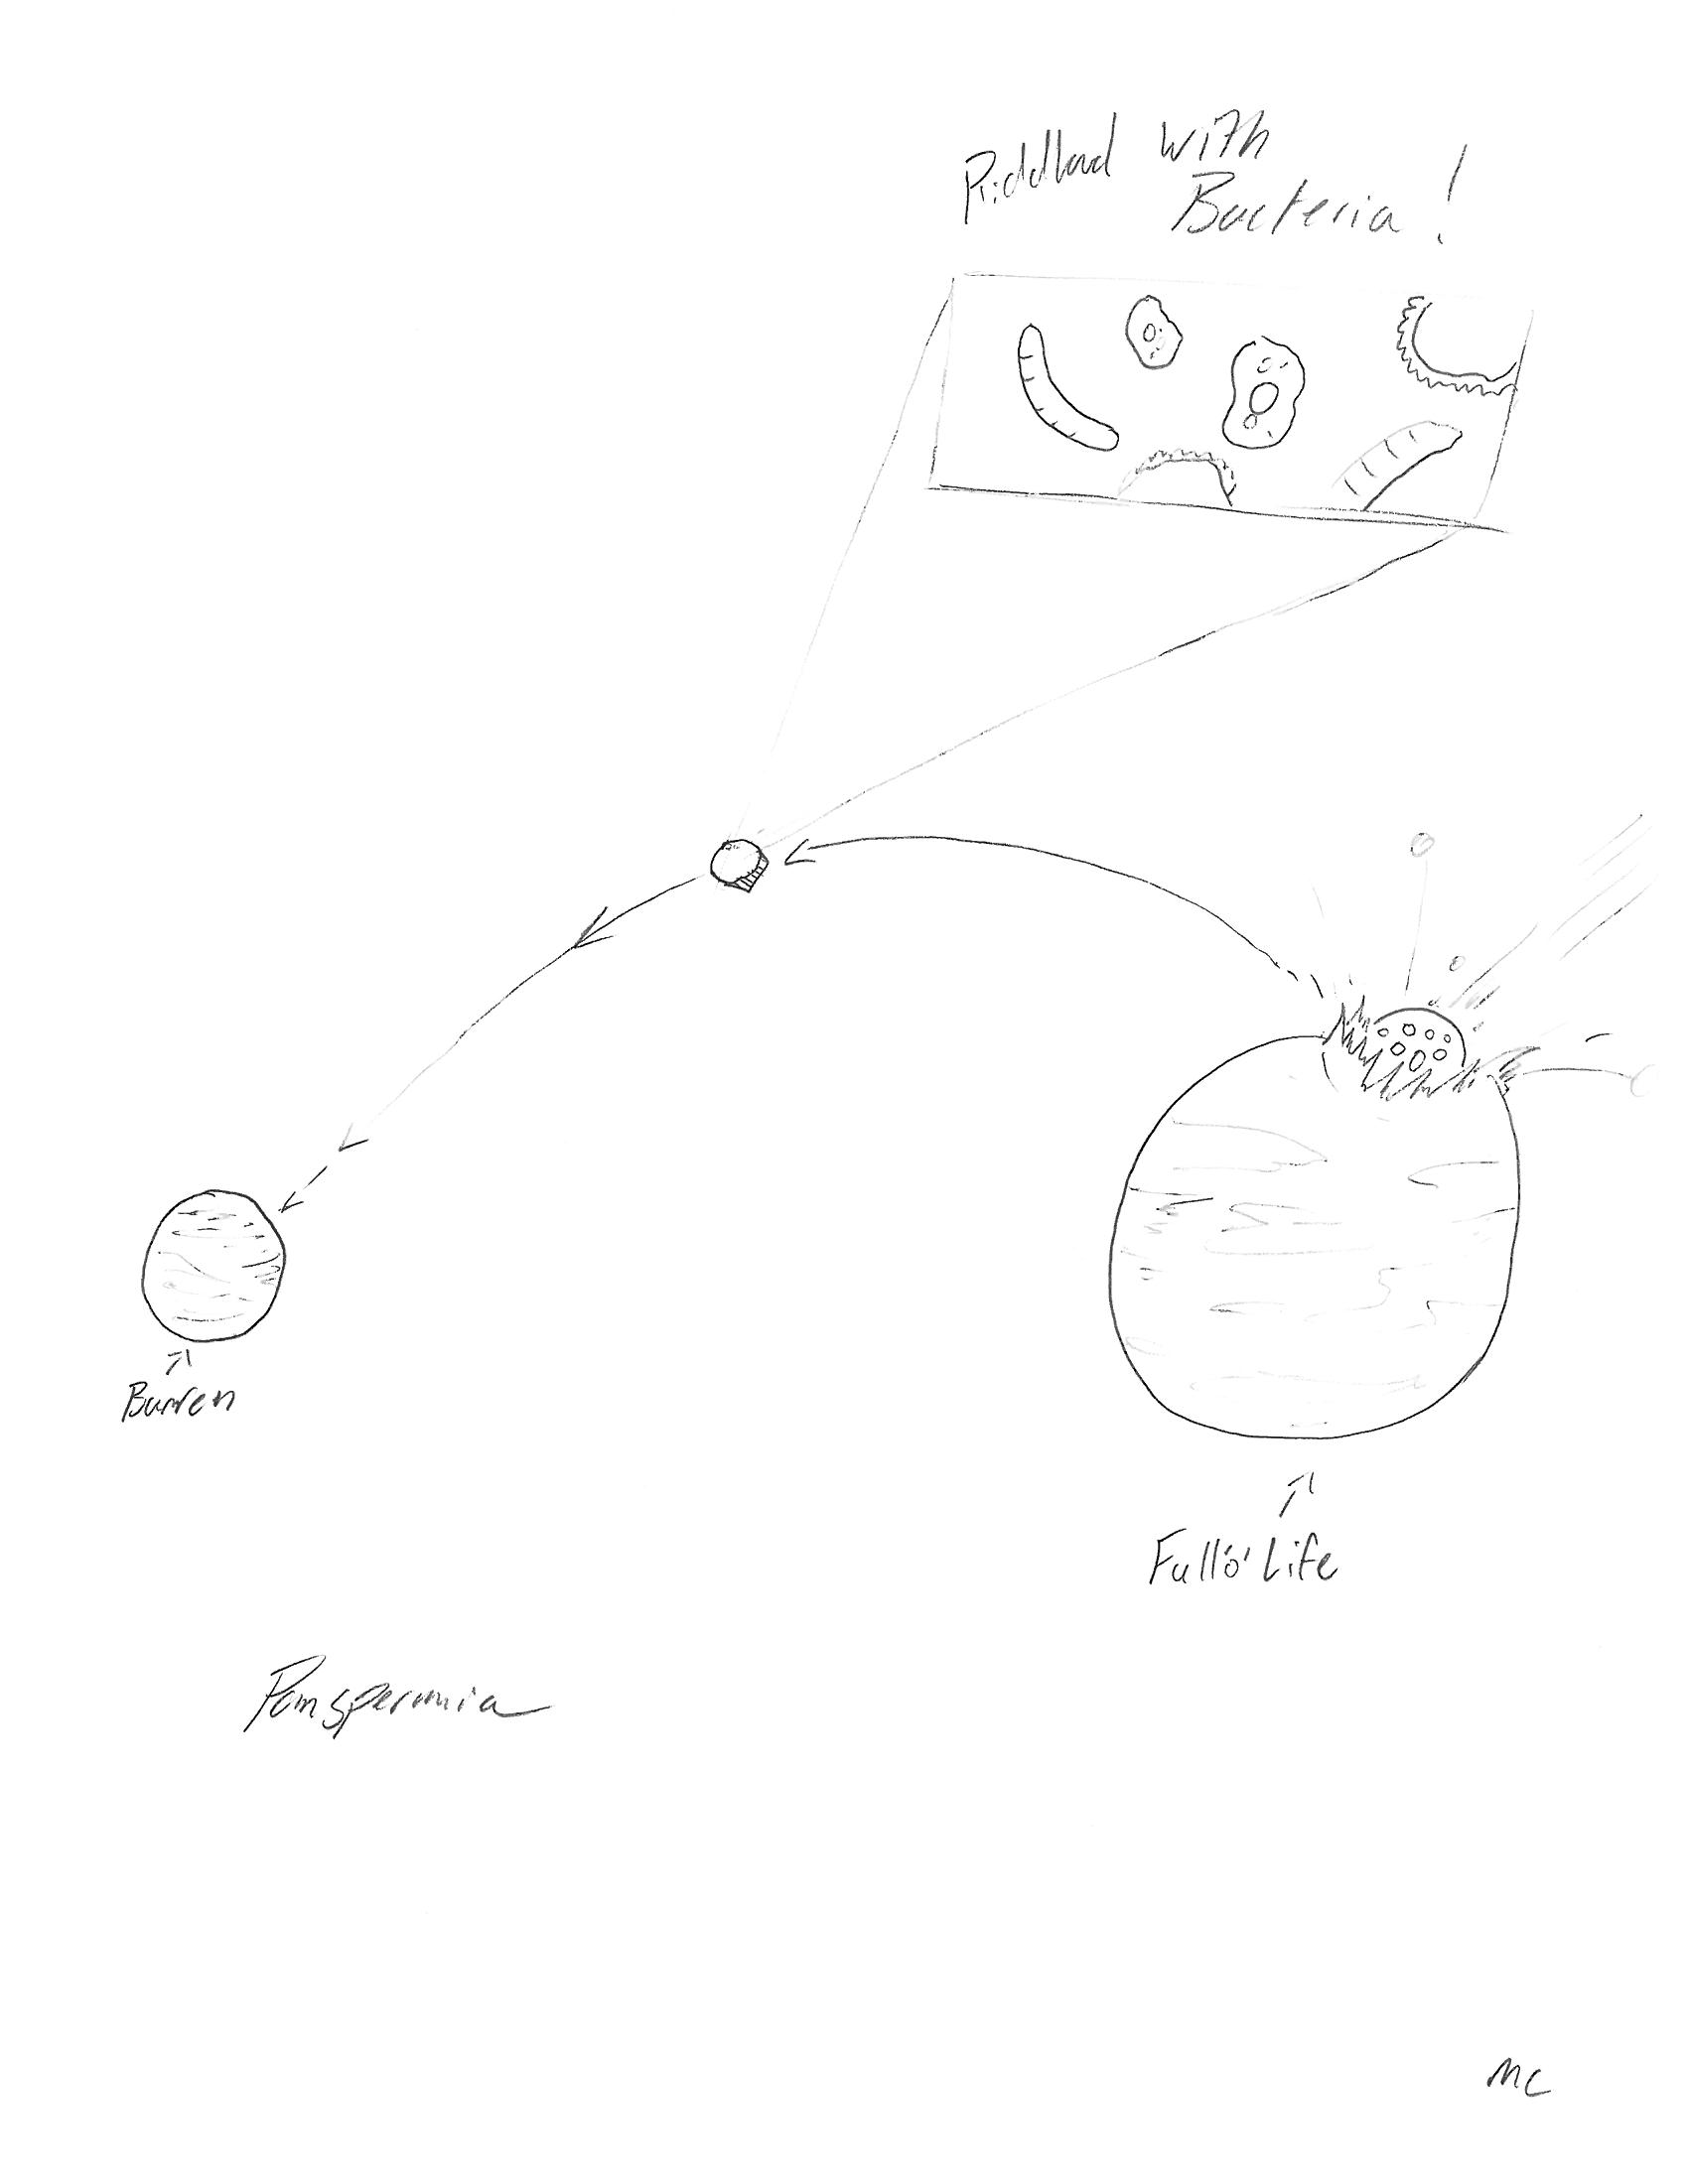 Riddled with
Bacteria!
Barren
Full 'o' Life
Panspermia
MC